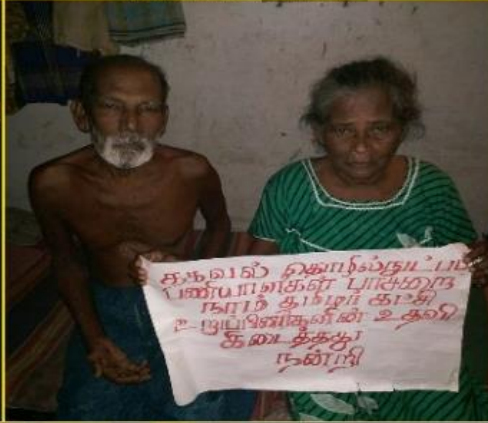 தகவல் தொழில்நுட்பப்
பணியாளகள் பாசறை
நாம் தமிழர் கட்சி
உறுப்பினர்களின் உதவி
கிடைத்தது
நன்றி